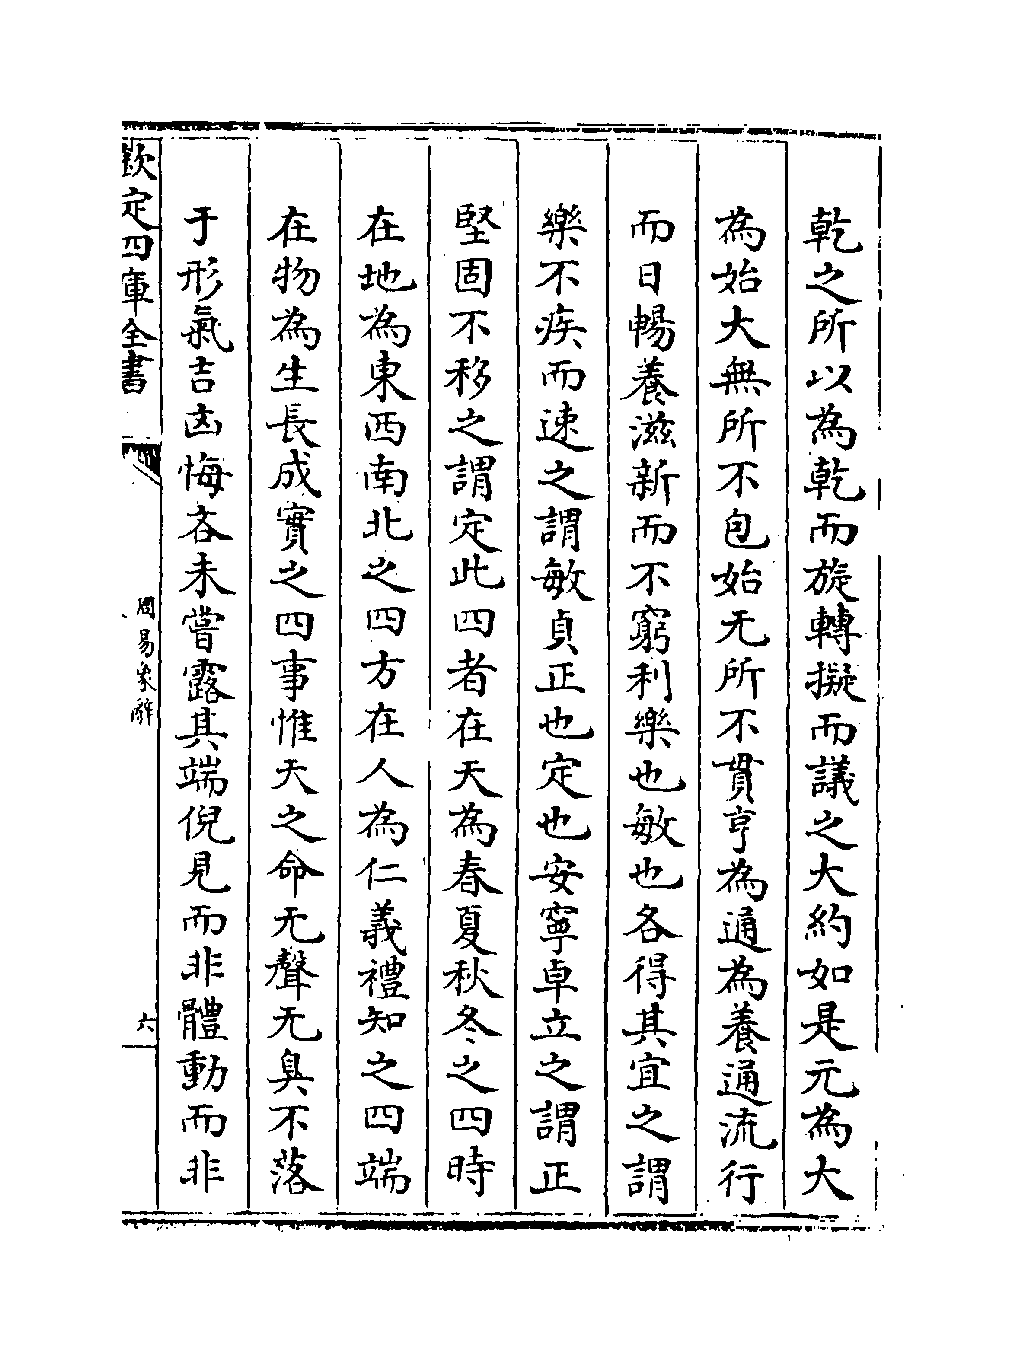 乾之所以為乾而旋轉擬而議之大約如是元為大
為始大無所不包始无所不貫亨為通為養通流行
而日暢養滋新而不窮利樂也敏也各得其宜之謂
樂不疾而速之謂敏貞正也定也安寧卓立之謂正
堅固不移之謂定此四者在天為春夏秋冬之四時
在地為東西南北之四方在人為仁義禮知之四端
在物為生長成實之四事惟天之命无聲无臭不落
于形氣吉凶悔吝未嘗露其端倪見而非體動而非
欽定四庫全書
周易象辭
六